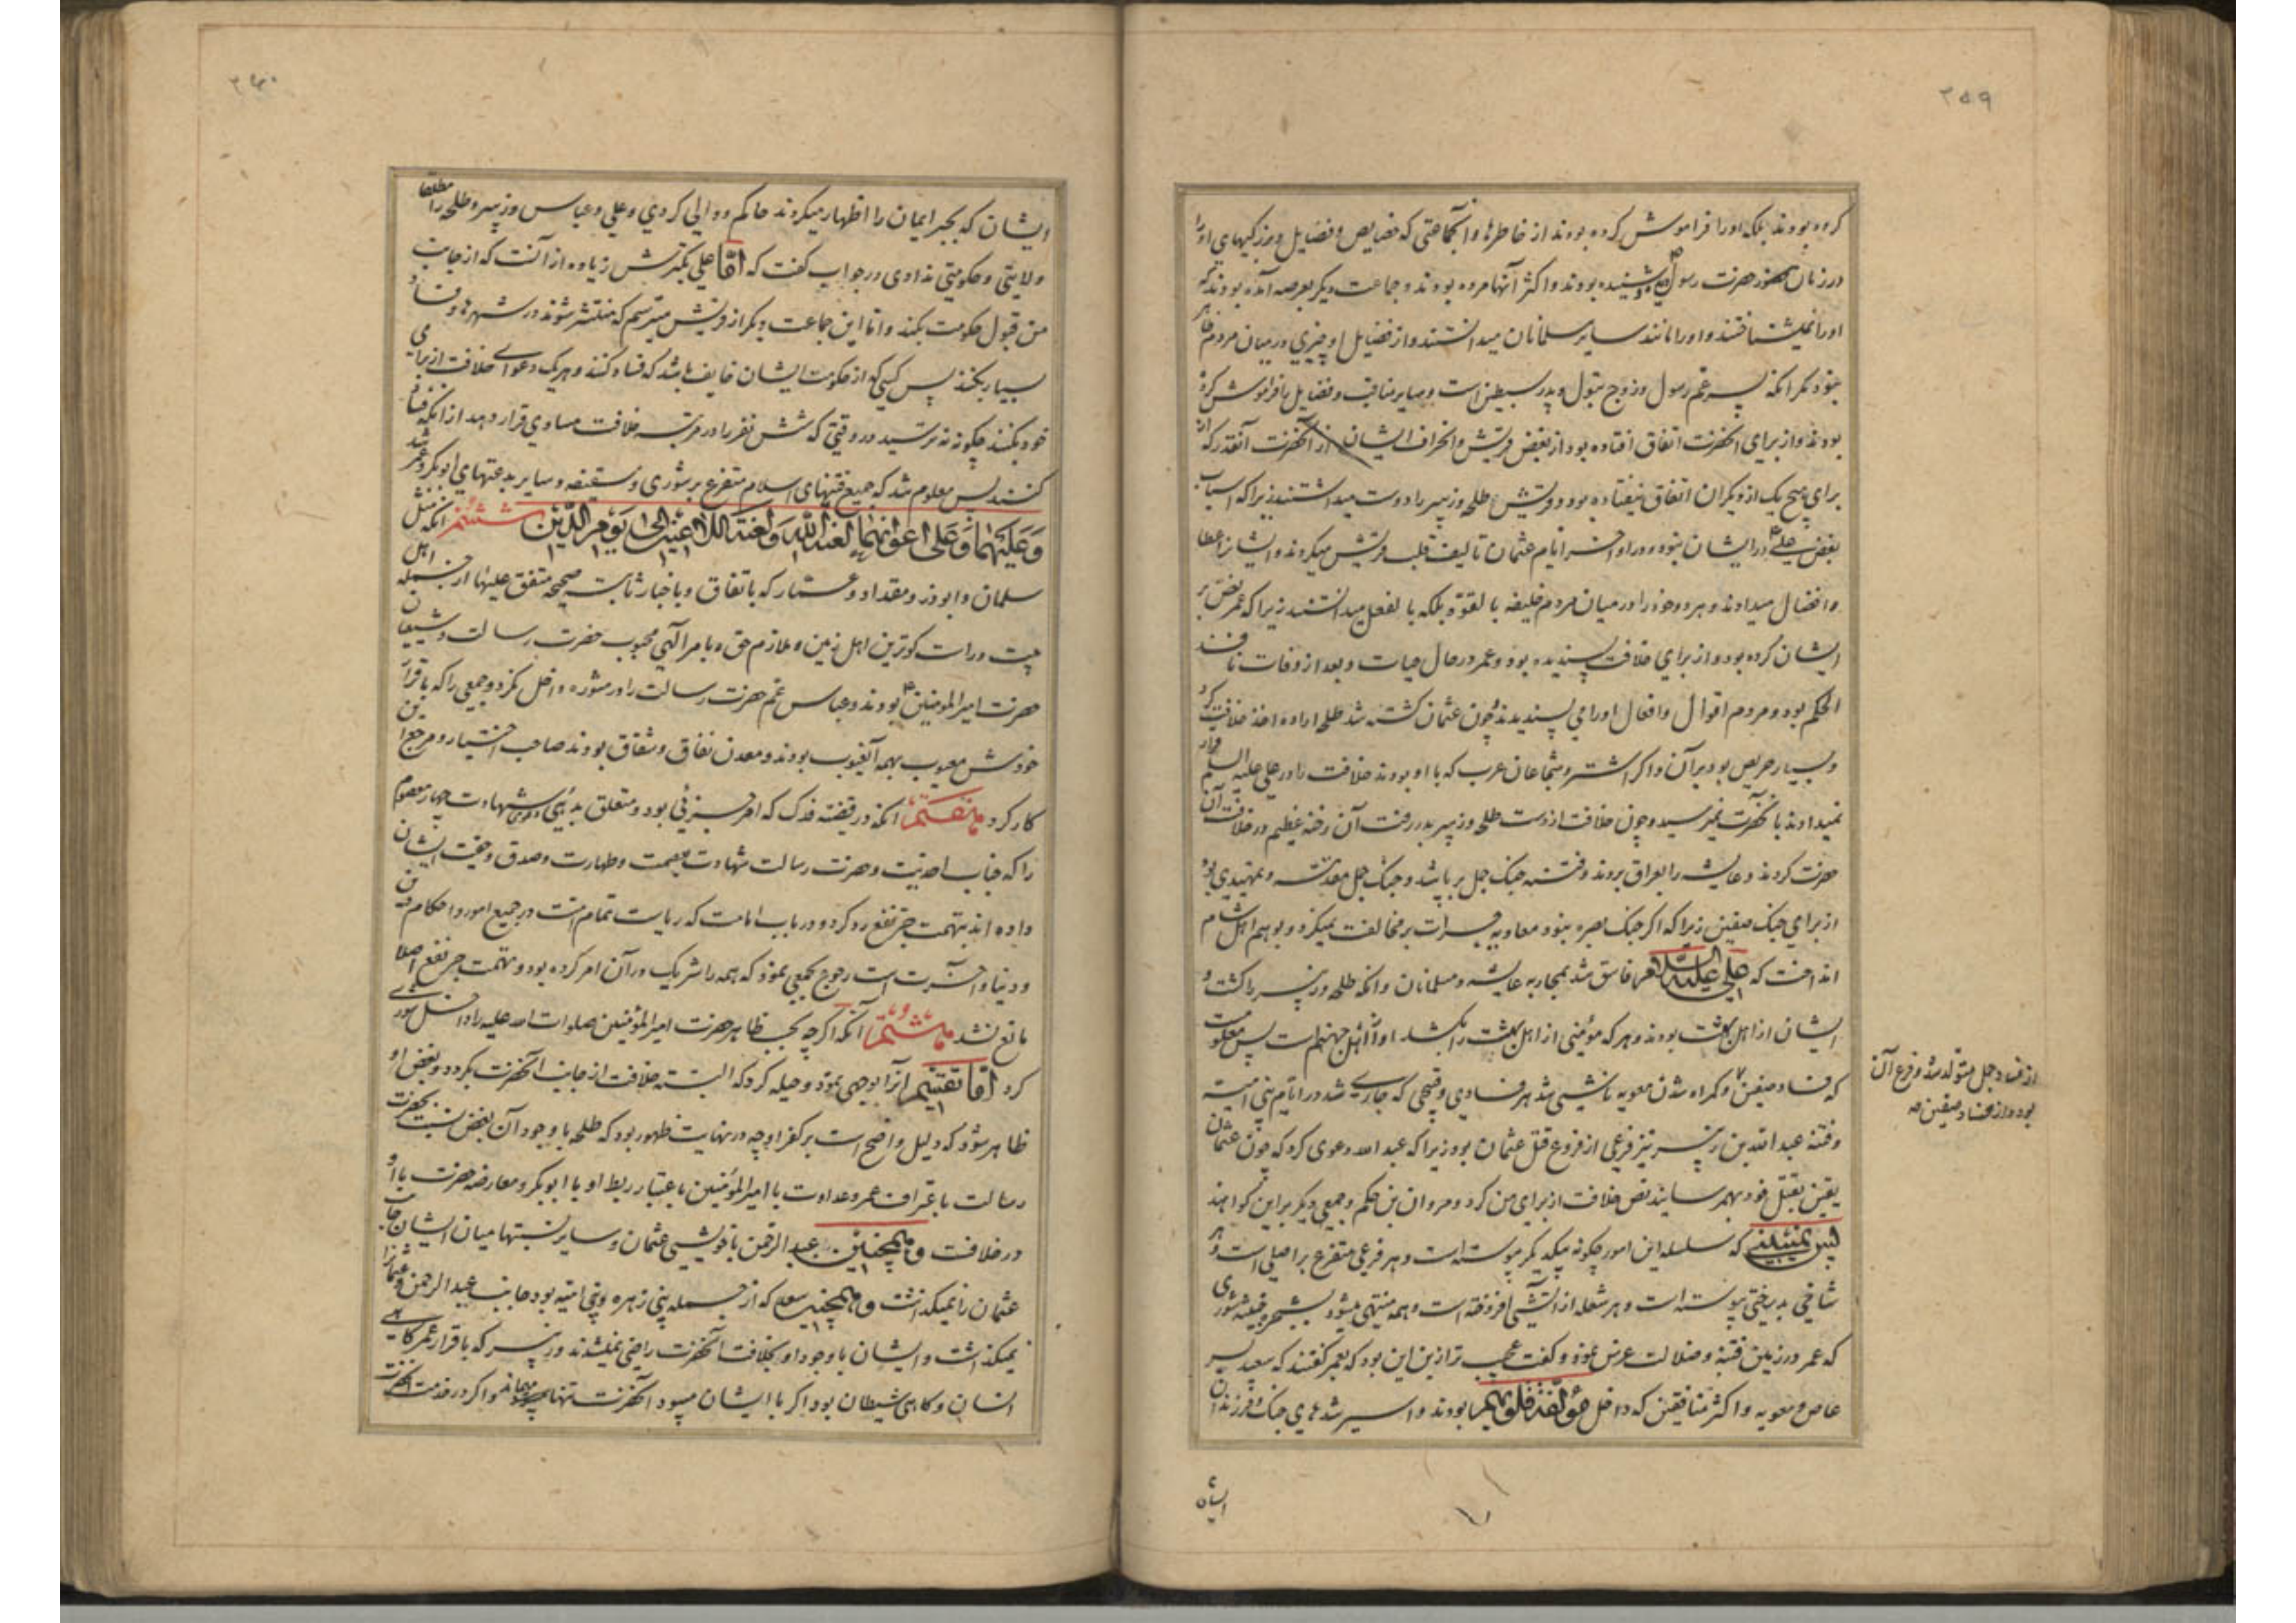 ۲۵۹
کرده بودند بلکه او را فراموش کرده بودند از خاطرها و آنجماعتی که خصایص و فضایل و بزرگیهای او را
در زمان حضرت رسول شنیده بودند و اکثر آنها مرده بودند و جماعت دیگر بعرصه آمده بودند که
او را نمیشناختند و او را مانند سایر مسلمانان میدانستند و از فضایل او چیزی در میان مردم ظاهر
نبود مگر آنکه پسر عم رسول و زوج بتول و پدر سبطین است و سایر مناقب و فضایل را فراموش کرده
بودند و از برای آنحضرت اتفاق افتاده بود از بغض قریش و انحراف ایشان از آنحضرت آنقدر که از
برای هیچ یک از دیگران اتفاق نیفتاده بود و قریش طلحه و زبیر را دوست میداشتند زیرا که اسباب
بغض علی در ایشان نبود و در اواخر ایام عثمان تالیف قلب قریش میکردند و ایشان را عطا
و افضال میدادند و هر دو خود را در میان مردم خلیفه بالقوه بلکه بالفعل میدانستند زیرا که عمر نص بر
ایشان کرده بود و از برای خلافت پسندیده بود و عمر در حال حیات و بعد از وفات نافذ
الحکم بود و مردم اقوال و افعال او را می پسندیدند و چون عثمان کشته شد طلحه اراده اخذ خلافت کرد
و بسیار حریص بود بر آن و اگر اشتر و شجاعان عرب که با او بودند خلافت را در علی علیه السلام قرار
نمیدادند بآنحضرت نمیرسید و چون خلافت از دست طلحه و زبیر بدر رفت آن رخنه عظیم در خلافت آن
حضرت کردند و عایشه را بعراق بردند و فتنه جنگ جمل برپا شد و جنگ جمل مقدمه و تمهیدی بود
از برای جنگ صفین زیرا که اگر جنگ بصره نبود معاویه جرات بر مخالفت نمیکرد و بوهم اهل شام
انداخت که علی علیه السلام فاسق شد بمحاربه عایشه و مسلمانان و آنکه طلحه و زبیر را کشت و
ایشان از اهل بهشت بودند و هر که مؤمنی از اهل بهشت را بکشد او از اهل جهنم است پس معلوم
که فساد صفین و گمراه شدن معویه ناشی شد هر فسادی و قبحی که جاری شد در ایام بنی امیه
و فتنه عبد الله بن زبیر نیز فرعی از فروع قتل عثمان بود زیرا که عبد الله دعوی کرد که چون عثمان
یقین بقتل خود بهم رسانید نص خلافت از برای من کرد و مروان بن حکم و جمعی دیگر بر این گواهند
پس نمی‌بینی که سلسله این امور چگونه بیکدیگر پیوسته است و هر فرعی متفرع بر اصلی است و هر
شاخی بدرختی پیوسته است و هر شعله از آتشی افروخته است و همه منتهی میشود بشجره خبیثه شوری
که عمر در زمین فتنه و ضلالت غرس نمود و گفت عجب تر از این این بود که بعمر گفتند که سعید پسر
عاص و معویه و اکثر منافقین که داخل مؤلفة قلوبهم بودند و اسیر شدهای جنگ و فرزندان
ایشان
از فساد جمل متولد شد و فرع آن
بود و از فساد صفین صه
۲۶۰
ایشان که بجبر ایمان را اظهار میکردند حاکم و والی کردی و علی و عباس و زبیر و طلحه را مطلقا
ولایتی و حکومتی ندادی در جواب گفت که اما علی تکبرش زیاده از آنست که از جانب
من قبول حکومت بکند و اما این جماعت دیگر از قریش میترسم که منتشر شوند در شهرها و فساد
بسیار بکنند پس کسی که از حکومت ایشان خایف باشد که فساد کنند و هر یک دعوای خلافت از برای
خود بکنند چگونه نترسید در وقتی که شش نفر را در مرتبه خلافت مساوی قرار دهد از آنکه فساد
کنند پس معلوم شد که جمیع فتنهای اسلام متفرع بر شوری و سقیفه و سایر بدعتهای ابو بکر و عمر شد
و علیهما و علی اعوانهما لعنة الله و لعنة اللاعنین الی یوم الدین ششم آنکه مثل
سلمان و ابوذر و مقداد و عمار که باتفاق و باخبار ثابت صحیحه متفق علیها از جمله اهل
بیت و راست گوترین اهل زمین و ملازم حق و بامر الهی محبوب حضرت رسالت و شیعیان
حضرت امیر المومنین بودند و عباس عم حضرت رسالت را در مشوره داخل نکرد و جمعی را که باقرار
خودش معیوب بهمه آنعیوب بودند و معدن نفاق و شقاق بودند صاحب اختیار و مرجع این
کار کرد هفتم آنکه در قضیه فدک که امر جزئی بود و متعلق بدنیا شهادت چهار معصوم
را که جناب احدیت و حضرت رسالت شهادت بعصمت و طهارت و صدق و حقیت ایشان
داده اند بتهمت جر نفع رد کرد و در باب امامت که ریاست تمام امت در جمیع امور و احکام دین
و دنیا و آخرت است رجوع بجمعی نمود که همه را شریک در آن امر کرده بود و تهمت جر نفع اصلا
مانع نشد هشتم آنکه اگر چه بحسب ظاهر حضرت امیر المؤمنین صلوات الله علیه را داخل شوری
کرد اما آنرا بوجهی نمود و حیله کرد که البته خلافت از جانب آنحضرت بگردد و بغض او
ظاهر شود که دلیل واضح است بر کفر او چه در نهایت ظهور بود که طلحه با وجود آن بغض نسبت بحضرت
رسالت باعتراف عمر و عداوت با امیر المؤمنین باعتبار ربط او با ابو بکر و معارضه حضرت با او
در خلافت و همچنین عبد الرحمن با خویشی عثمان و سایر نسبتها میان ایشان جانب
عثمان را نمیگذاشت و همچنین سعد که از جمله بنی زهره و بنی امیه بود جانب عبد الرحمن و عثمان را
نمیگذاشت و ایشان با وجود او بخلافت آنحضرت راضی نمیشدند و زبیر که باقرار عمر گاهی
انسان و گاهی شیطان بود اگر با ایشان میبود آنحضرت تنها میماند و اگر در خدمت آنحضرت